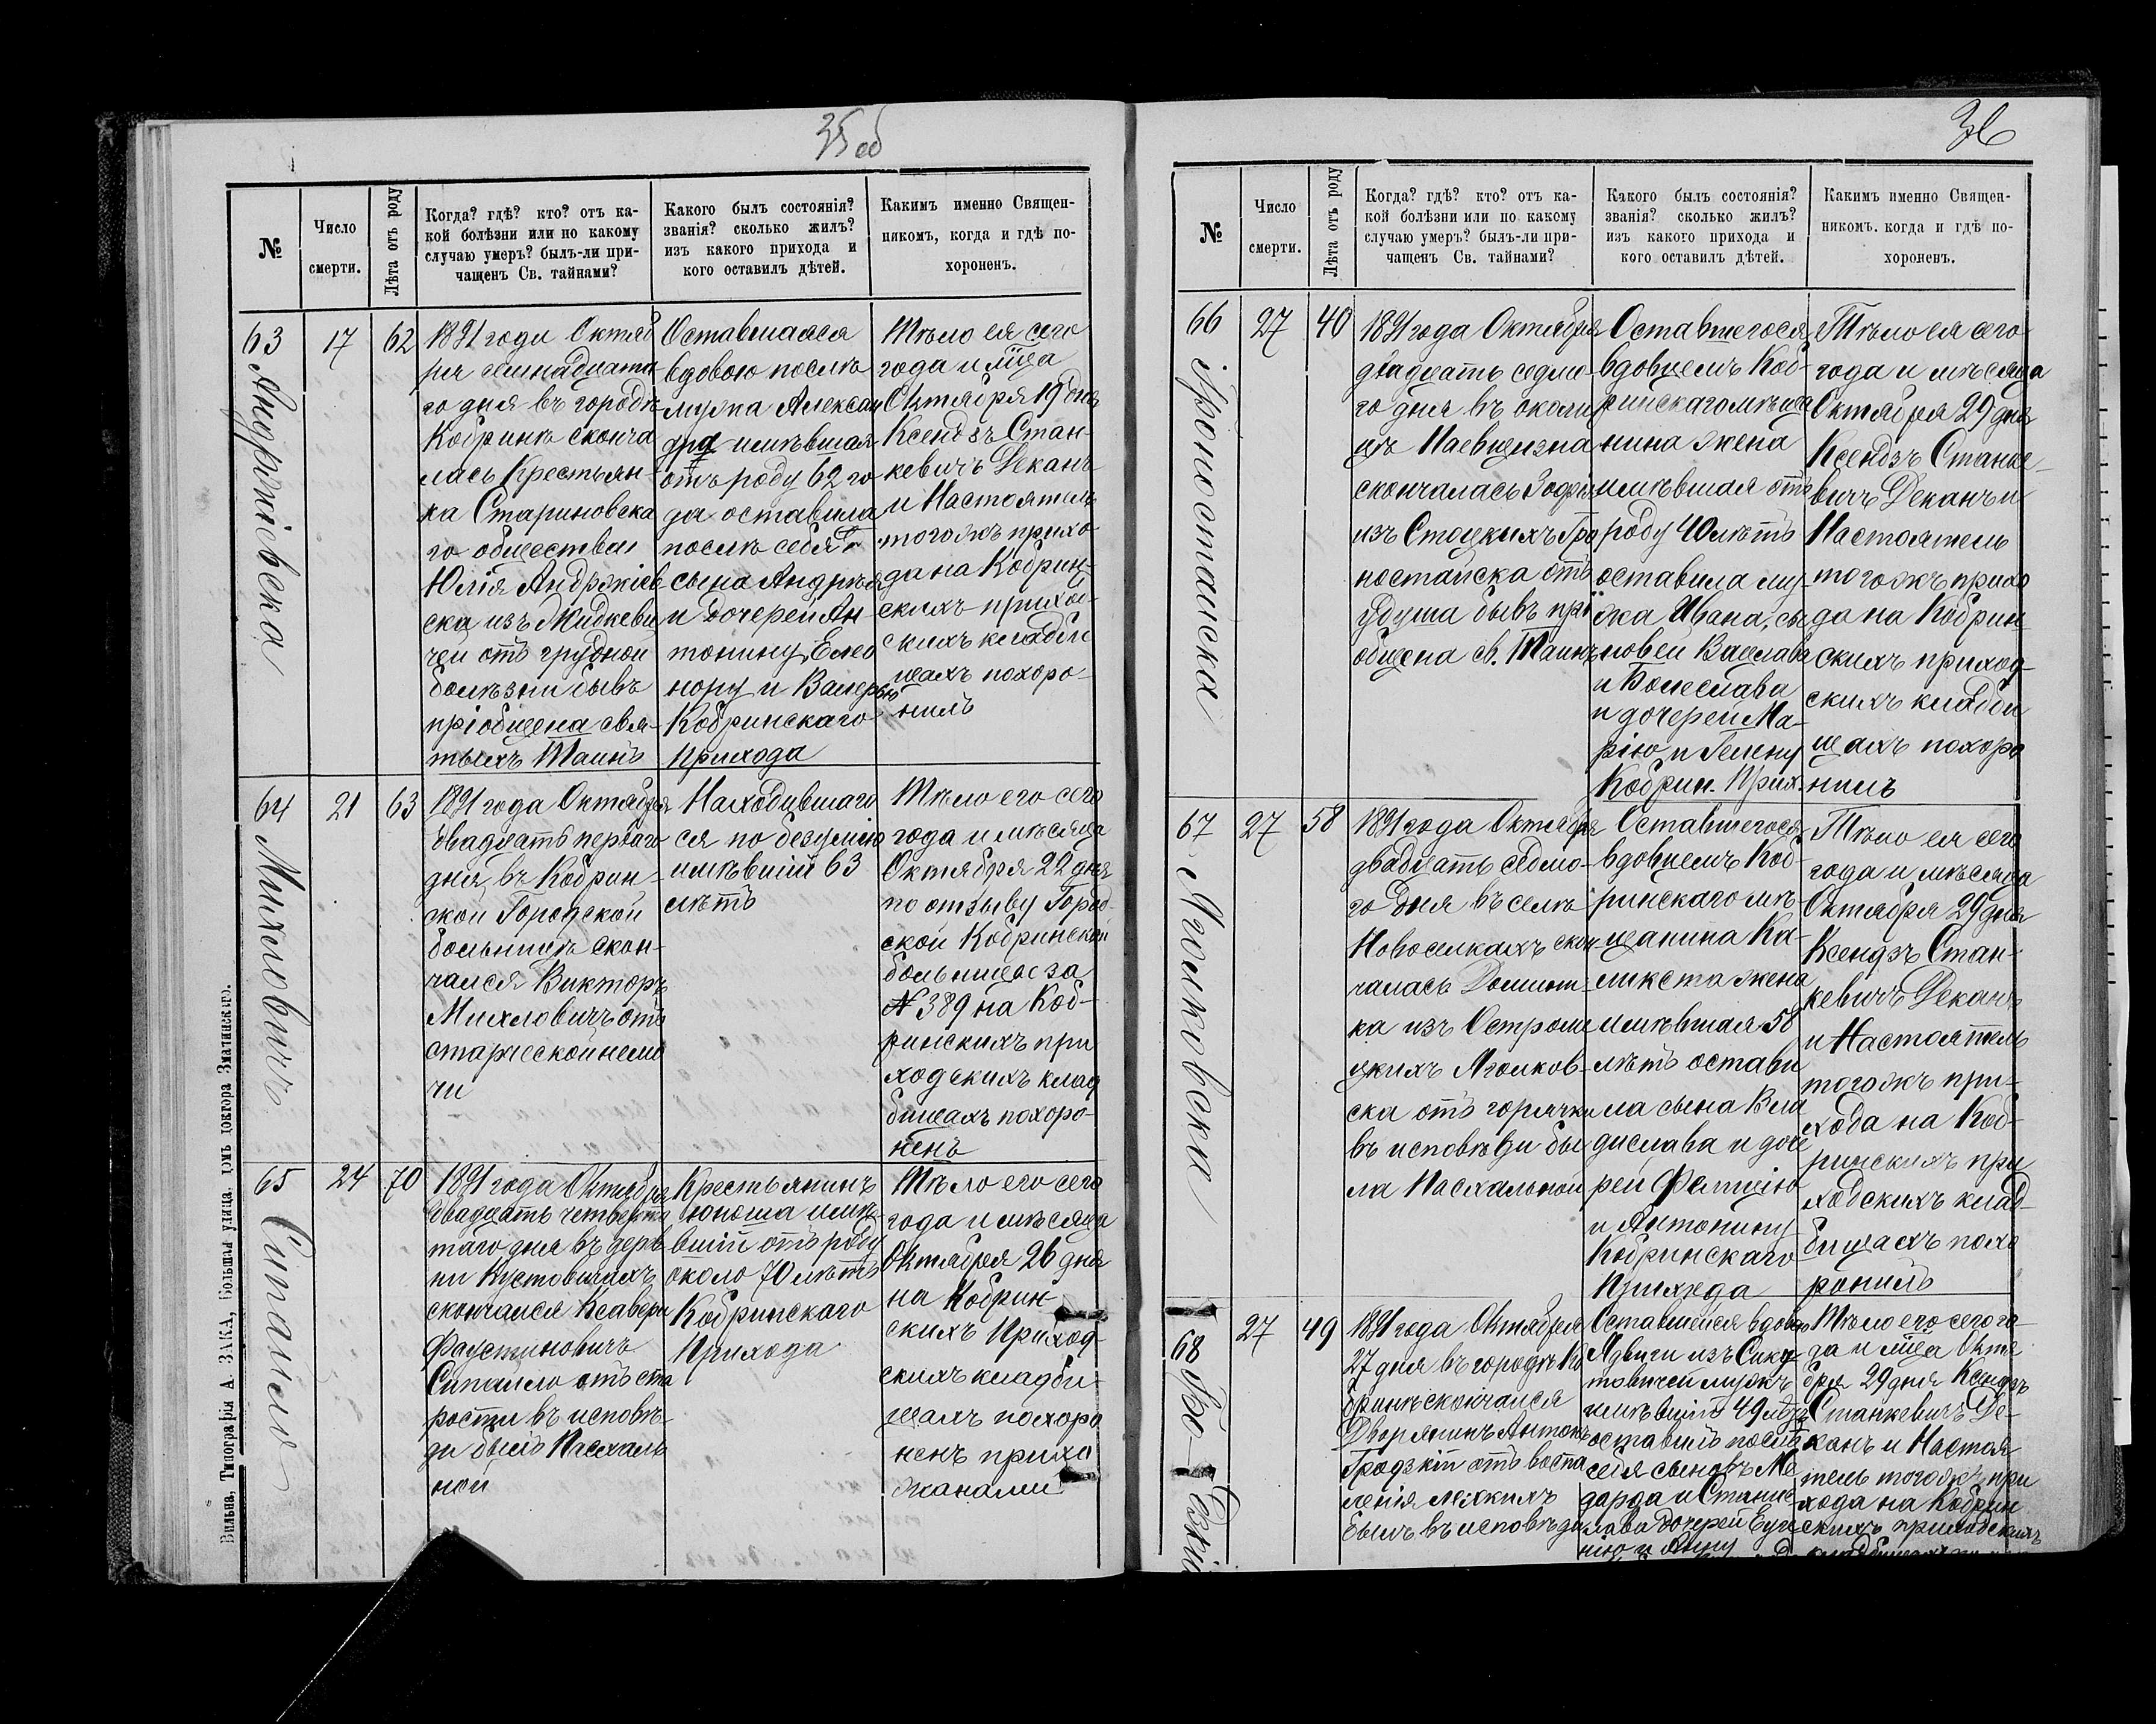 35 об
№
Число
смерти.
Лѣта отъ роду
Когда? гдѣ? кто? отъ ка-
кой болѣзни или по какому
случаю умеръ? былъ-ли при-
чащенъ Св. тайнами?
Какого былъ состоянія?
званія? сколько жилъ?
изъ какого прихода и
кого оставилъ дѣтей.
Какимъ именно Священ-
никомъ, когда и гдѣ по-
хороненъ.
63
Андржіевска
17
62
1891 года Октяб
ря семнадцата
го дня въ городѣ
Кобринѣ сконча
лась Крестьян
ка Стариновска
го общества
Юлія Андржіев
ска изъ Мидкеви
чей отъ грудной
болѣзни бывъ
пріобщена свя-
тыхъ Таинъ
Оставшаяся
вдовою послѣ
мужа Алексан
дра имѣвшая
отъ роду 62 го
да оставила
послѣ себя
сына Андрея
и дочерей Ан
тонину, Елео
нору и Валерію
Кобринскаго
прихода
Тѣло ея сего
года и мѣца
Октября 19 дня
Ксендзъ Стан-
кевичъ Деканъ
и Настоятель
тогожъ прихо
да на Кобрин-
скихъ приход-
скихъ кладби
щахъ похоро-
нилъ
64
Михловичъ
21
63
1891 года Октября
двадцать перваго
дня въ Кобрин-
ской Городской
больницѣ скон-
чался Викторъ
Михловичъ отъ
старческой немо
чи
Находившаго
ся по безумію
имѣвшій 63
лѣтъ
Тѣло его сего
года и мѣсяца
Октября 22 дня
по отзыву Город-
ской Кобринской
больницы за
№ 389 на Коб-
ринскихъ при
ходскихъ клад
бищахъ похоро-
ненъ
65
Сипайло
24
70
1891 года Октября
двадцать четверта
таго дня въ дерев
ни Кустовичахъ
скончался Ксаверій
Фаустиновичъ
Сипайло отъ ста
рости въ исповѣ-
ди былъ Пасхаль
ной
Крестьянинъ
юноша имѣ-
вшій отъ роду
около 70 лѣтъ
Кобринскаго
Прихода
Тѣло его сего
года и мѣсяца
Октября 26 дня
на Кобрин-
скихъ Приход-
скихъ кладби-
щахъ похоро
ненъ прихо
жанами
Вильна, Типографія А. ЗАКА, Большая улица, домъ доктора Зматинскаго.
36
№
Число
смерти.
Лѣта отъ роду
Когда? гдѣ? кто? отъ ка-
кой болѣзни или по какому
случаю умеръ? былъ-ли при-
чащенъ Св. тайнами?
Какого былъ состоянія?
званія? сколько жилъ?
изъ какого прихода и
кого оставилъ дѣтей.
Какимъ именно Священ-
никомъ. когда и гдѣ по-
хороненъ.
66
Гроностайска
27
40
1891 года Октября
двадцать седмо-
го дня въ околи
цѣ Паевщизна
скончалась Зофія
изъ Стоцкихъ Гро
ностайска отъ
удуша бывъ прі
общена св. Таинъ
Оставшегося
вдовцемъ Коб-
ринскаго мѣща
нина жена
имѣвшая отъ
роду 40 лѣтъ
оставила му-
жа Ивана, сы
новей Вацлава
и Болеслава
и дочерей Ма-
рію и Гелену
Кобрин. Прих.
Тѣло ея сего
года и мѣсяца
Октября 29 дня
Ксендзъ Станке-
вичъ Деканъ и
Настоятель
тогожъ прихо
да на Кобрин
скихъ приход-
скихъ кладби
щахъ похоро
нилъ
67
Яголковска
27
58
1891 года Октября
двадцать седмо-
го дня въ селѣ
Новоселкахъ скон
чалась Доминн-
ка изъ Остроме
цкихъ Яголков-
ска отъ горячки
въ исповѣди бы
ла Пасхальной
Оставшегося
вдовцемъ Коб-
ринскаго мѣ-
щанина Ка-
ликста жена
имѣвшая 58
лѣтъ остави
ла сына Вла
дислава и доче
рей Фелицію
и Антонину
Кобринскаго
Прихода
Тѣло ея сего
года и мѣсяца
Октября 29 дня
Ксендзъ Стан-
кевичъ Деканъ
и Настоятель
тогожъ при-
хода на Коб-
ринскихъ при
ходскихъ клад-
бищахъ похо
ронилъ
68
27
49
1891 года Октября
27 дня въ городѣ Ко
бринѣ скончался
Дворянинъ Антонъ
Гродзкій отъ воспа
ленія легкихъ
былъ въ исповѣди
Оставшейся вдовою
Ядвиги изъ
мужъ
имѣвшій 49 лѣтъ
оставилъ послѣ
себя сыновъ Ме
дарда и Станис
лава дочерей Евге
нію и Анну
Тѣло его сего го-
да и мѣца Октя
бря 29 дня Ксендзъ
Станкевичъ Де-
канъ и Настоя
тель тогожъ при
хода на Кобрин
скихъ приходскихъ
кладбищахъ